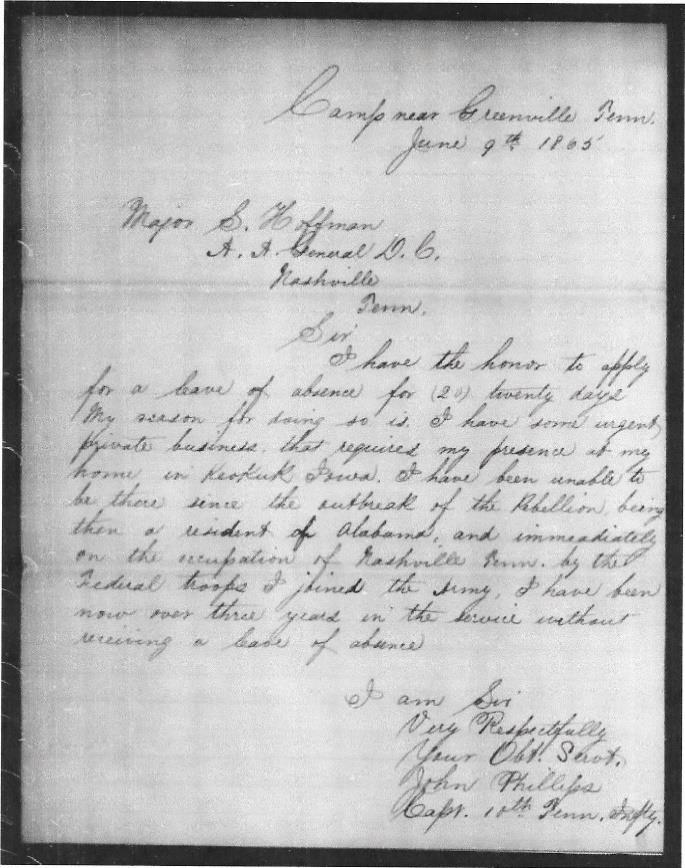 Camp near Greenville Tenn.
June 9th 1865
Major S. Hoffman
A. A. General D. C.
Nashville
Tenn.
Sir
I have the honor to apply
for a leave of absence for (20) twenty days
My reason for doing so is. I have some urgent
private business, that required my presence at my
home in Keokuk Iowa. I have been unable to
be there since the outbreak of the Rebellion, being
then a resident of Alabama, and immeadiately
on the occupation of Nashville Tenn. by the
Federal troops I joined the Army, I have been
now over three years in the service without
receiving a leave of absence
I am Sir
Very Respectfully
Your Obt. Servt.
John Phillips
Capt. 10th Tenn. Infty.